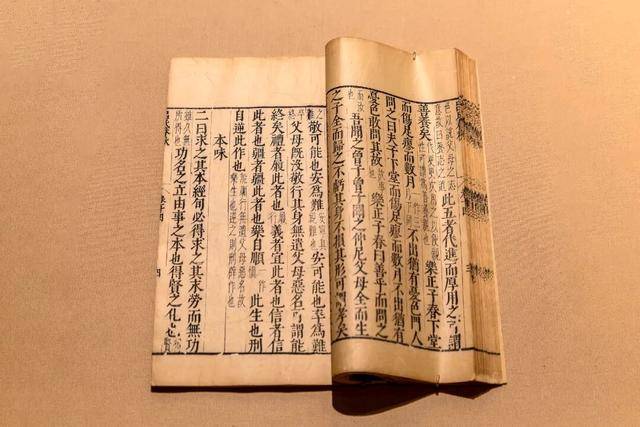 此五者代進而厚用之可謂
善養矣 樂正子春下堂
而傷足瘳而數月不出猶有憂色門人
問之曰夫子下堂而傷足瘳而數月不出猶有
憂色敢問其故 樂正子春曰善乎而問之
吾聞之曾子曾子聞之仲尼父母全而生
之子全而歸之不虧其身不損其形可謂孝矣
敬可能也安為難 安可能也卒為難
父母既沒敬行其身無遺父母惡名可謂能
終矣禮者履此者也義者宜此者也信者信
此者也彊者彊此者也樂自順此生也刑
自逆此作也 能順行無遺父母惡名故樂生也逆之則刑辟作也
本味
二曰求之其本經旬必得求之其末勞而無功
功名之立由事之本也得賢之化也